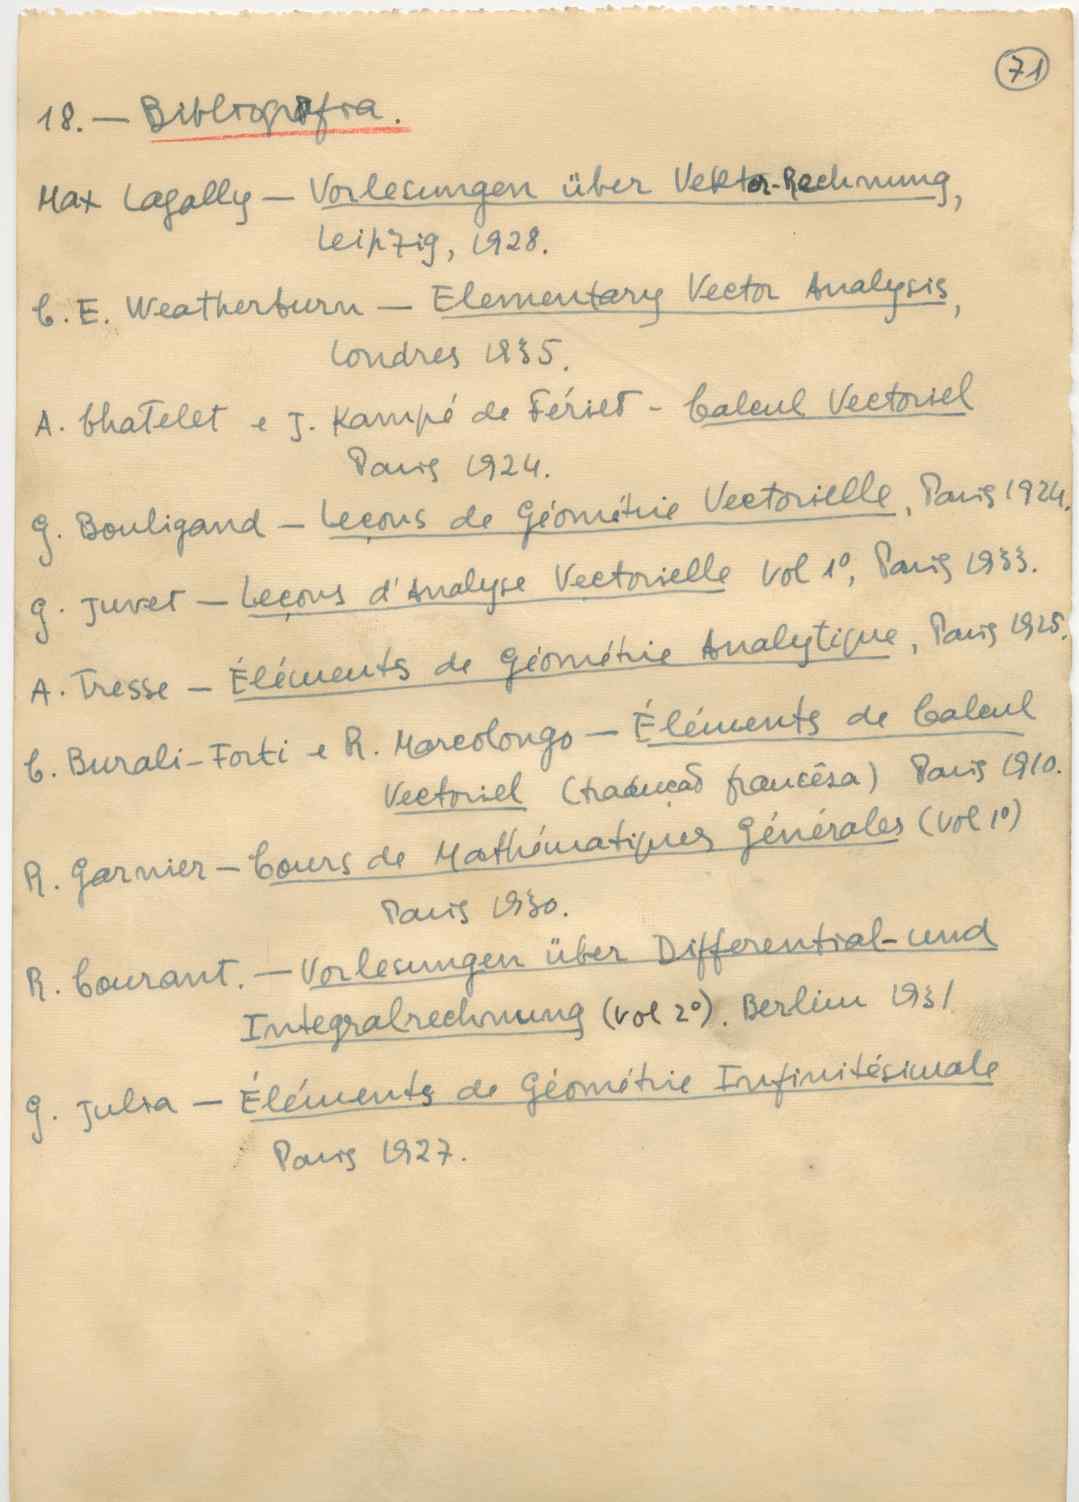 71
18. — Bibliografia.
Max Lagally — Vorlesungen über Vektor-Rechnung,
Leipzig, 1928.
C. E. Weatherburn — Elementary Vector Analysis,
Londres 1935.
A. Chatelet e J. Kampé de Fériet - Calcul Vectoriel
Paris 1924.
G. Bouligand — Leçons de Géométrie Vectorielle, Paris 1924.
G. Juvet — Leçons d'Analyse Vectorielle vol 1º, Paris 1933.
A. Tresse — Éléments de Géométrie Analytique, Paris 1925.
C. Burali-Forti e R. Marcolongo — Éléments de Calcul
Vectoriel (tradução francêsa) Paris 1910.
R. Garnier — Cours de Mathématiques Générales (vol 1º)
Paris 1930.
R. Courant. — Vorlesungen über Differential-und
Integralrechnung (vol 2º). Berlim 1931
G. Julia — Éléments de Géométrie Infinitésimale
Paris 1927.